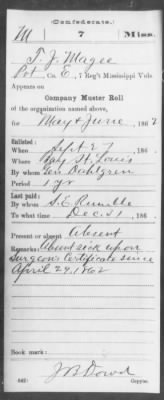 (Confederate.)
M 7 Miss.
T. J. Magee
Pvt., Co. E, 7 Reg't Mississippi Vols.
Appears on
Company Muster Roll
of the organization named above,
for May & June, 1862
Enlisted:
When Sept 27, 186
Where Bay St. Louis
By whom Gen Dahlgren
Period 1 yr
Last paid:
By whom S. E. Rumble
To what time Dec 31, 186
Present or absent Absent
Remarks: Absent sick upon
Surgeon's Certificate since
April 29, 1862
Book mark:
J B Dowd
(642) Copyist.